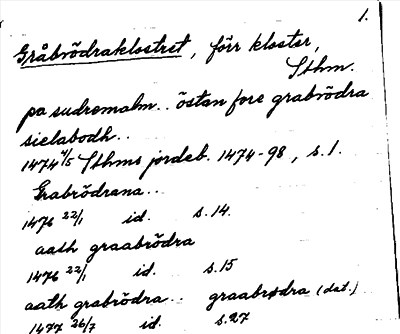 1.
Gråbrödraklostret, förr kloster,
Sthm.
pa sudremalm.. östan fore grabrödra
sielabodh..
1474 4/5 Sthms jordeb. 1474-98, s. 1.
Grabrödrana..
1476 22/1 id. s. 14.
aath graabrödra
1476 22/1 id. s. 15
aath grabrödra.. graabrødra (dat.)
1477 26/7 id. s. 27